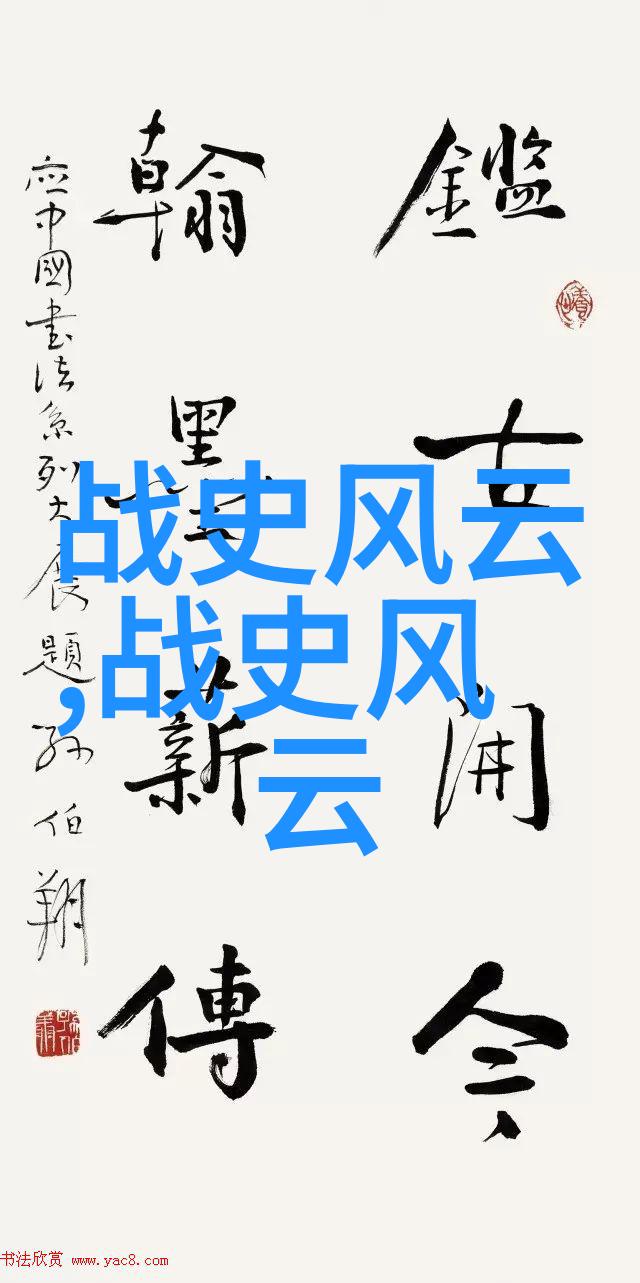 鑑古開今
翰墨薪傳
应中國書法系列大展題 孫伯翔
战史风云
,战史风
云
书法欣赏 www.yac8.com